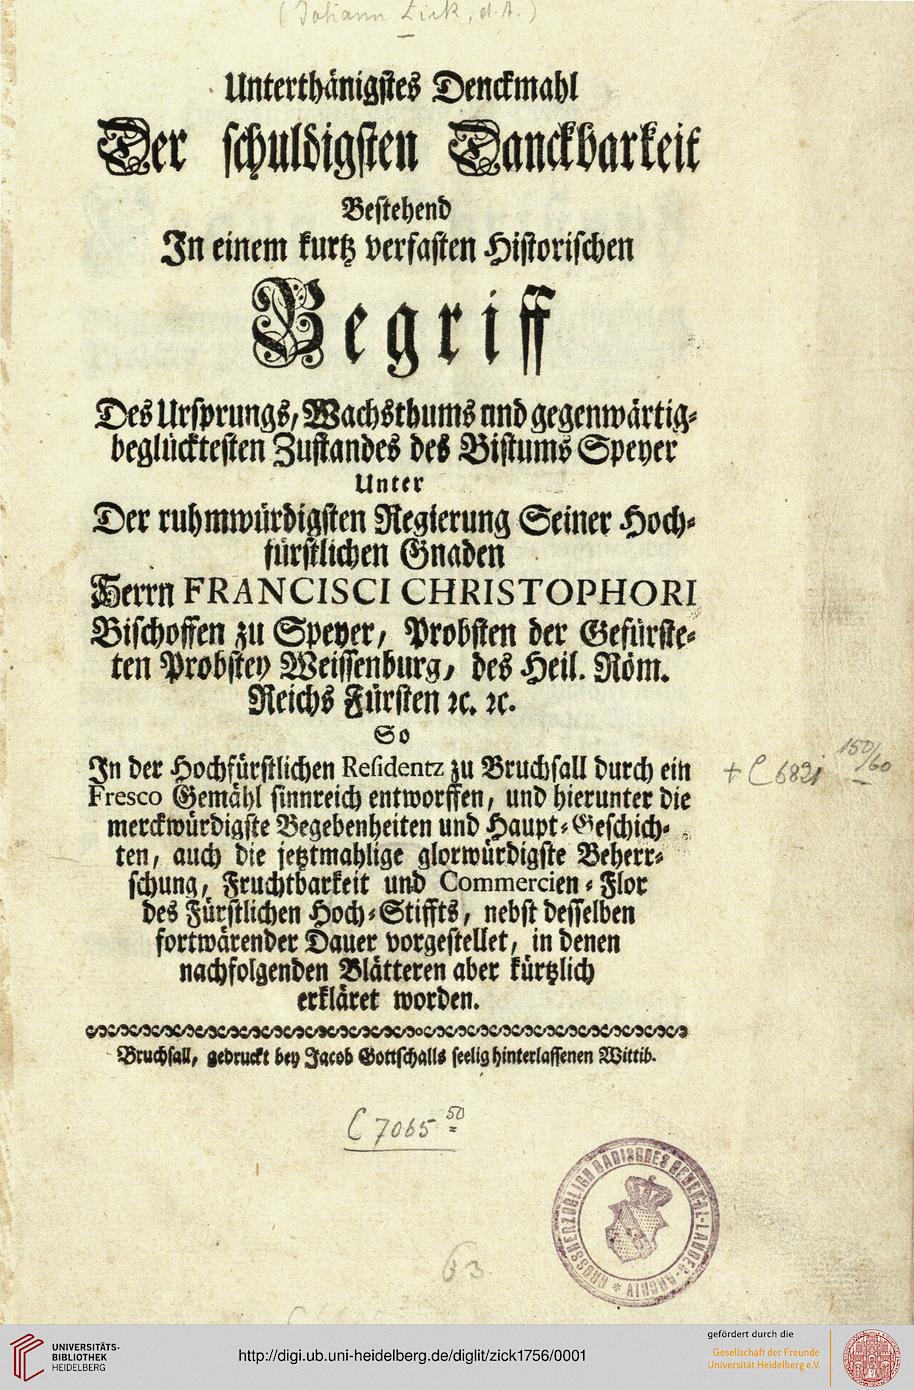 (Johann Zick, d. A.)
Unterthänigstes Denckmahl
Der schuldigsten Danckbarkeit
Bestehend
In einem kurtz verfasten Historischen
Begriff
Des Ursprungs, Wachsthums und gegenwärtig-
beglücktesten Zustandes des Bistums Speyer
Unter
Der ruhmwürdigsten Regierung Seiner Hoch-
fürstlichen Gnaden
Herrn FRANCISCI CHRISTOPHORI
Bischoffen zu Speyer, Probsten der Gefürste-
ten Probstey Weissenburg, des Heil. Röm.
Reichs Fürsten ꝛc. ꝛc.
So
In der Hochfürstlichen Residentz zu Bruchsall durch ein
Fresco Gemähl sinnreich entworffen, und hierunter die
merckwürdigste Begebenheiten und Haupt-Geschich-
ten, auch die jetztmahlige glorwürdigste Beherr-
schung, Fruchtbarkeit und Commercien-Flor
des Fürstlichen Hoch-Stiffts, nebst desselben
fortwärender Dauer vorgestellet, in denen
nachfolgenden Blätteren aber kürtzlich
erkläret worden.
Bruchsall, gedruckt bey Jacob Gottschalls seelig hinterlassenen Wittib.
+ C 6821 150/60
C 7065 50
GROSSHERZOGLICH BADISCHES GENERAL-LANDES-ARCHIV
63
UNIVERSITÄTS-
BIBLIOTHEK
HEIDELBERG
http://digi.ub.uni-heidelberg.de/diglit/zick1756/0001
gefördert durch die
Gesellschaft der Freunde
Universität Heidelberg e.V.